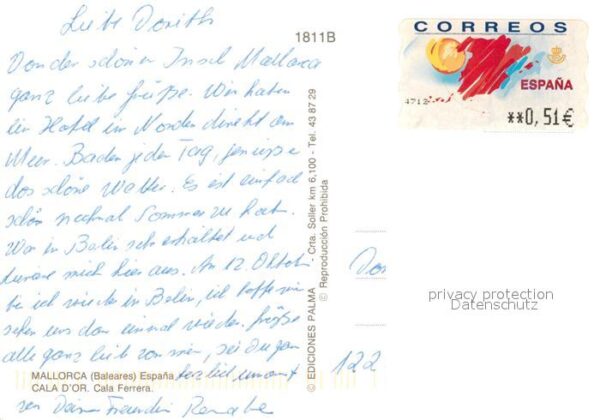 Liebe Dorith
1811B
Von der schönen Insel Mallorca
ganz liebe Grüße. Wir haben
ein Hotel im Norden direkt am
Meer. Baden jeden Tag,
das schöne Wetter. Es ist einfach
schön nochmal Sommer zu haben.
War in Berlin sehr erkältet und
kuriere mich hier aus. Am 12. Oktober
bin ich wieder in Berlin, ich hoffe wir
sehen uns dann einmal wieder. Grüße
alle ganz lieb von mir, sei Du ganz
MALLORCA (Baleares) España
herzlich umarmt
CALA D'OR. Cala Ferrera.
von Deiner Freundin Renate
© EDICIONES PALMA - Crta. Soller km 6,100 - Tel. 43 87 29
© Reproducción Prohibida
CORREOS
ESPAÑA
4712
**0,51€
Dor
privacy protection
Datenschutz
122